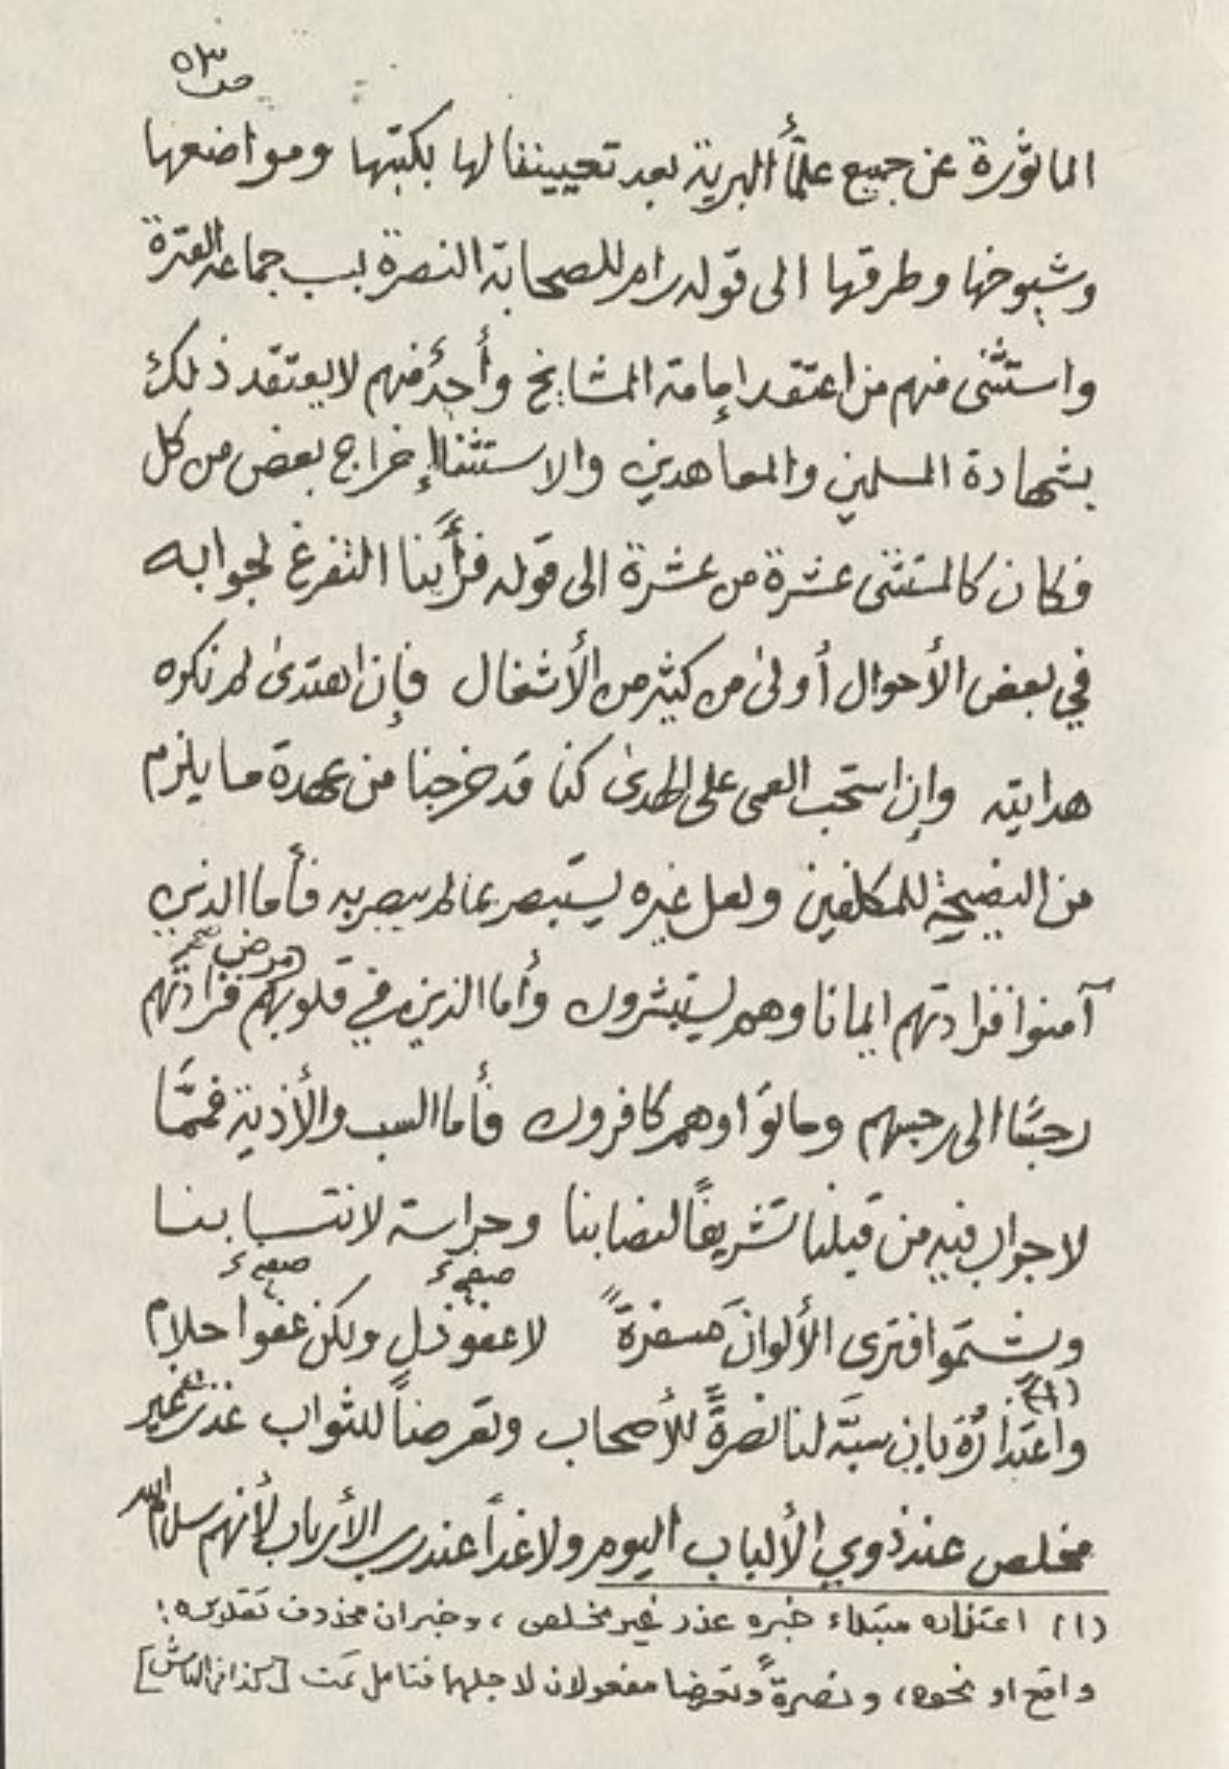 ص ٥٣
المأثورة عن جميع علمأ البرية بعد تعييننا لها بكتبها ومواضعها
وشيوخها وطرقها الى قوله رام للصحابة النصرة بسب جماعة العترة
واستثنى منهم من اعتقد إمامة المشايخ وأجدُ منهم لا يعتقد ذلك
بشهادة المسلمين والمعاهدين والاستثنا إخراج بعض من كل
فكان كالمستثنى عشرة من عشرة الى قوله فرأينا التفرغ لجوابه
في بعض الأحوال أولىٰ من كثير من الأشغال فإن اهتدىٰ لم نكره
هدايته وإن استحب العمى على الهدىٰ كنا قد خرجنا من عهدة ما يلزم
من النصيحة للمكلفين ولعل غيره يستبصر بما لم يبصر به فأما الذين
آمنوا فزادتهم ايمانا وهم يستبشرون وأما الذين في قلوبهم مرض فزادتهم
رجسًا الى رجسهم وماتوا وهم كافرون فأما السب والأذية فممَّا
لا جواب فيه من قبلنا تشريفًا لنصابنا وحراسة لانتسابنا
صفح صفح
ويشتموا فترى الألوانَ مسفرةً لا عفو ذلٍ ولكن عفو احلام
(١)
واعتذارُهُ بان سبَّه لنا نصرةً للأصحاب وتعرضاً للثواب عذر غير
مخلص عند ذوي الألباب اليوم ولا غداً عند رب الأرباب لأنهم سلام الله
(١) اعتذاره مبتداء خبره عذر غير مخلص ، وخبر ان محذوف تقديره :
واقع او نحوه ، ونصرةً وتعرضا مفعولان لاجلهما فتأمل تمت [كذا في الهامش]